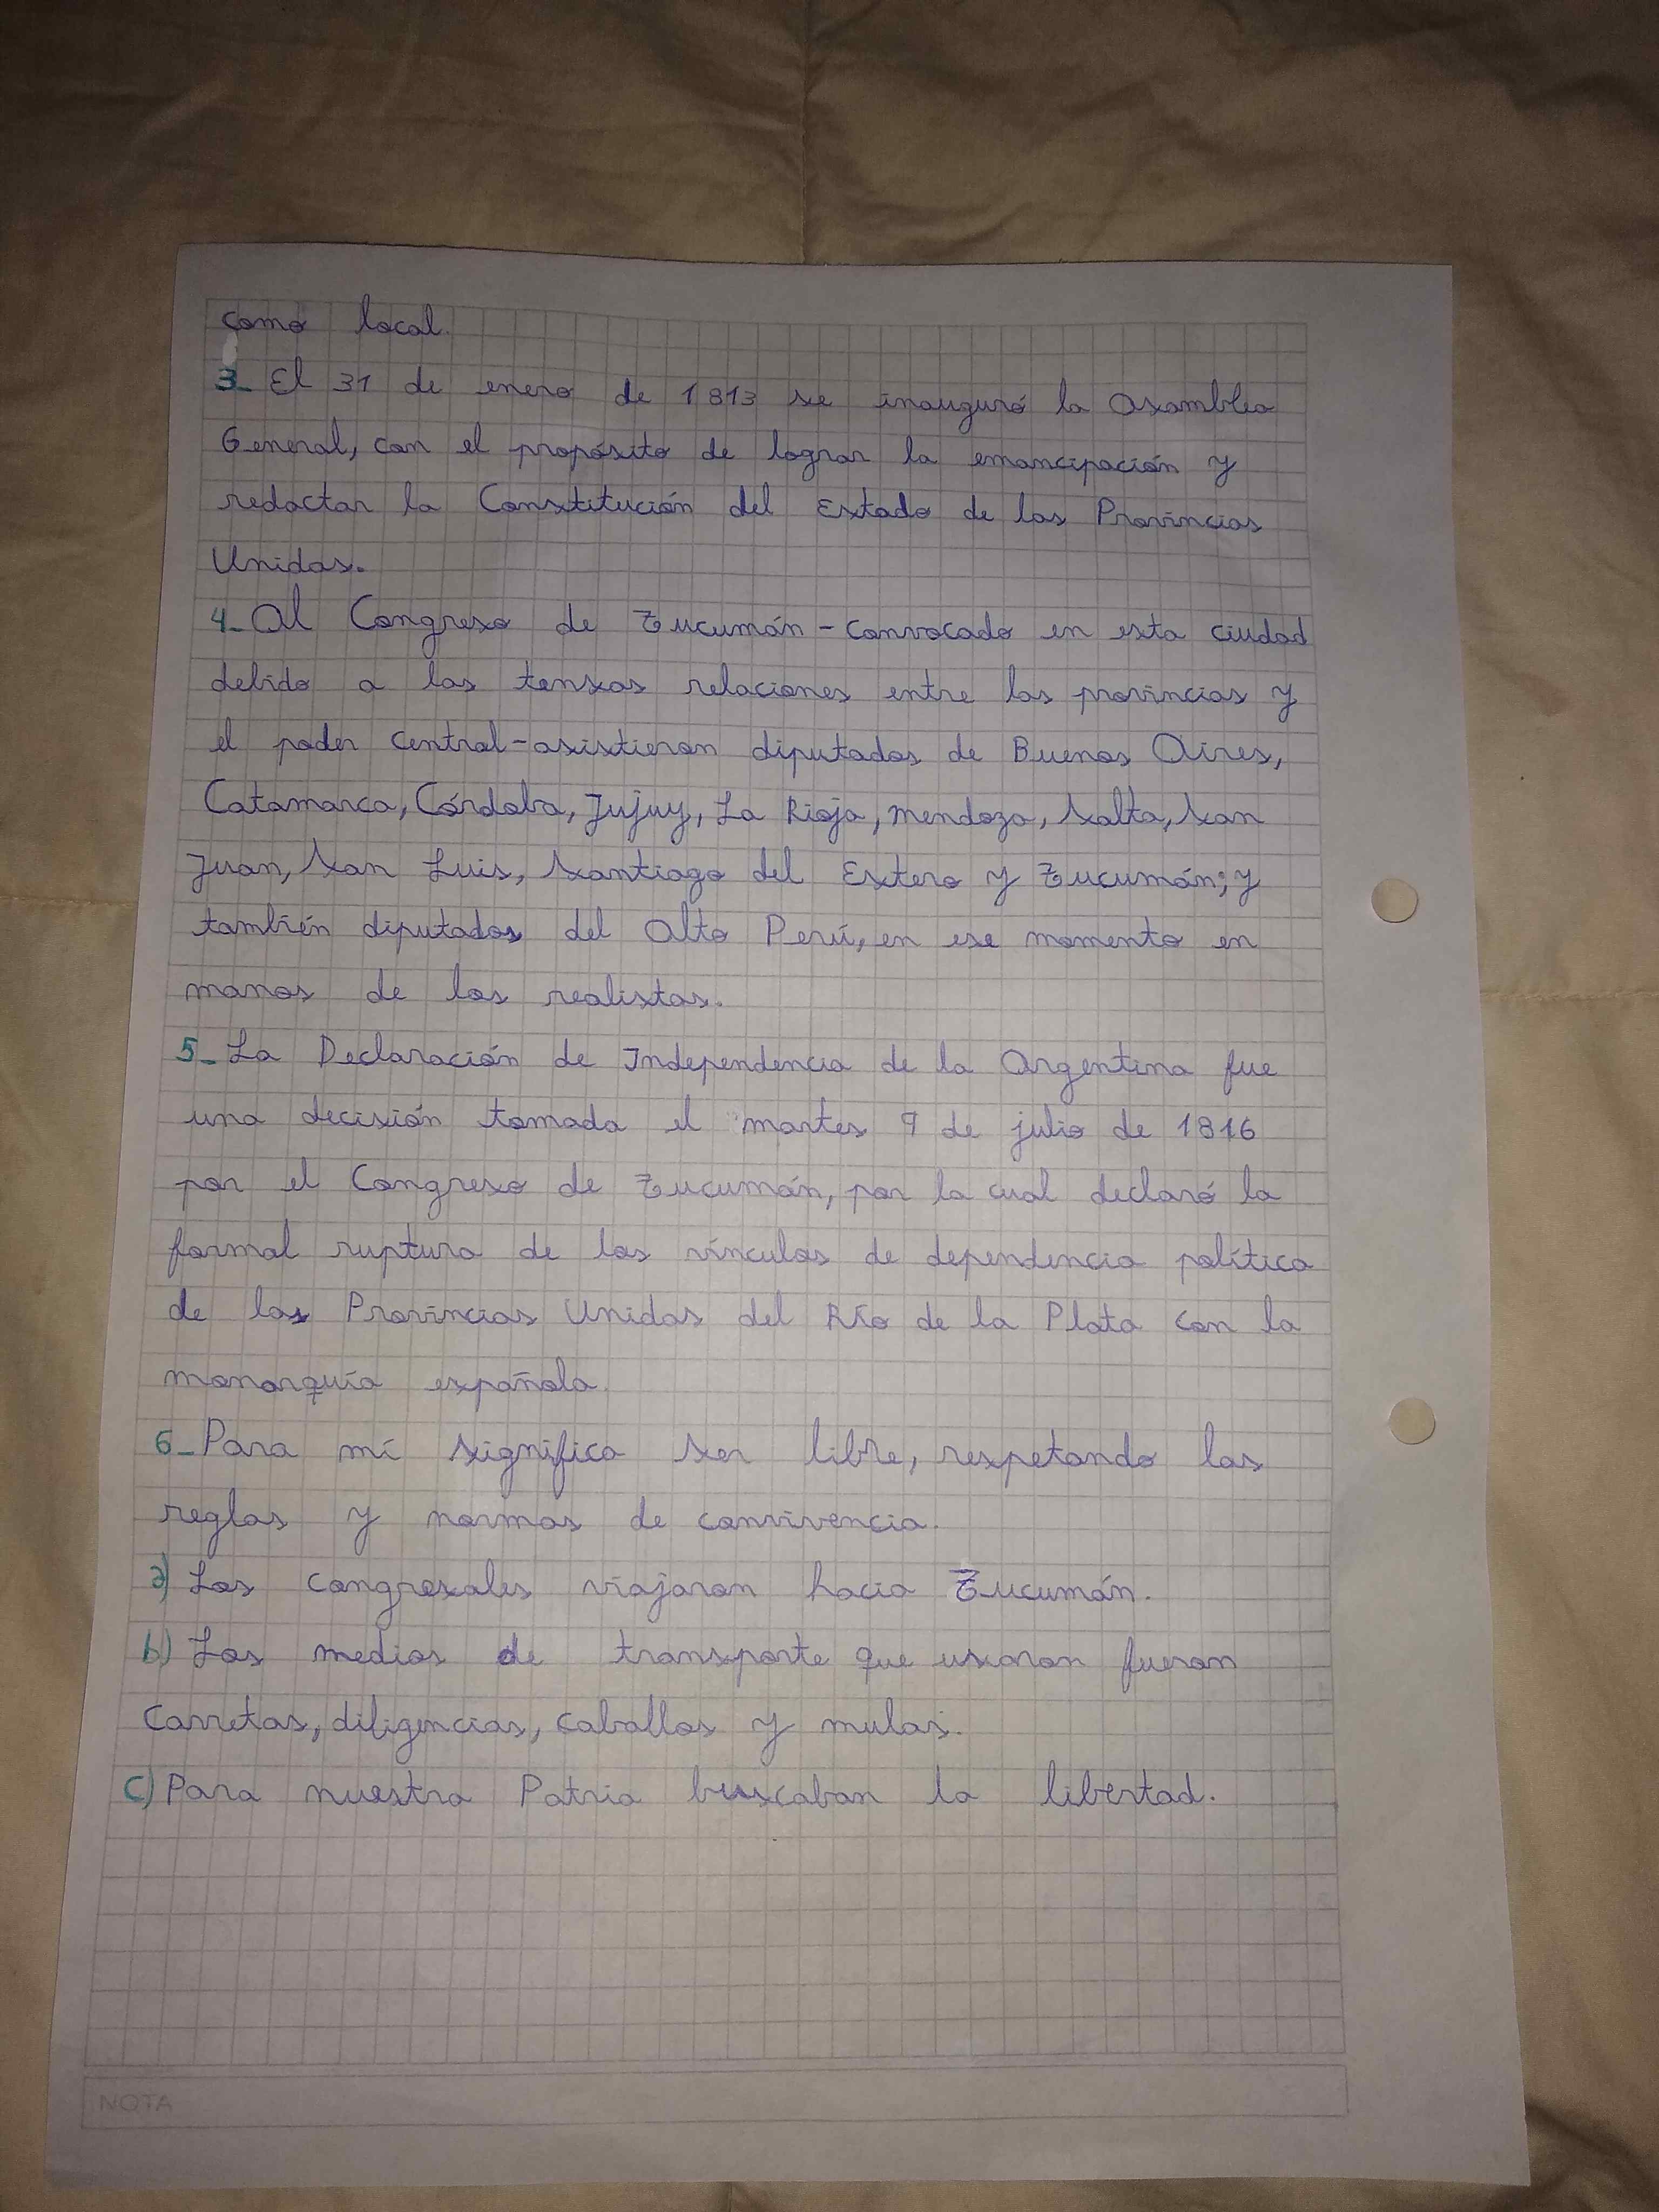 como local.
3_ El 31 de enero de 1813 se inauguró la Asamblea
General, con el propósito de lograr la emancipación y
redactar la Constitución del Estado de las Provincias
Unidas.
4_ Al Congreso de Tucumán - convocado en esta ciudad
debido a las tensas relaciones entre las provincias y
el poder central - asistieron diputados de Buenos Aires,
Catamarca, Córdoba, Jujuy, La Rioja, Mendoza, Salta, San
Juan, San Luis, Santiago del Estero y Tucumán; y
también diputados del Alto Perú, en ese momento en
manos de los realistas.
5_ La Declaración de Independencia de la Argentina fue
una decisión tomada el martes 9 de julio de 1816
por el Congreso de Tucumán, por la cual declaró la
formal ruptura de los vínculos de dependencia política
de las Provincias Unidas del Río de la Plata con la
monarquía española.
6_ Para mí significa ser libre, respetando las
reglas y normas de convivencia.
a) Los congresales viajaron hacia Tucumán.
b) Los medios de transporte que usaron fueron
carretas, diligencias, caballos y mulas.
c) Para nuestra Patria buscaban la libertad.
NOTA